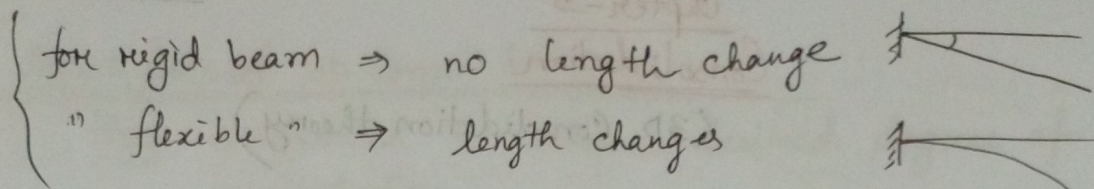 for rigid beam ⇒ no length change
" flexible " ⇒ length changes